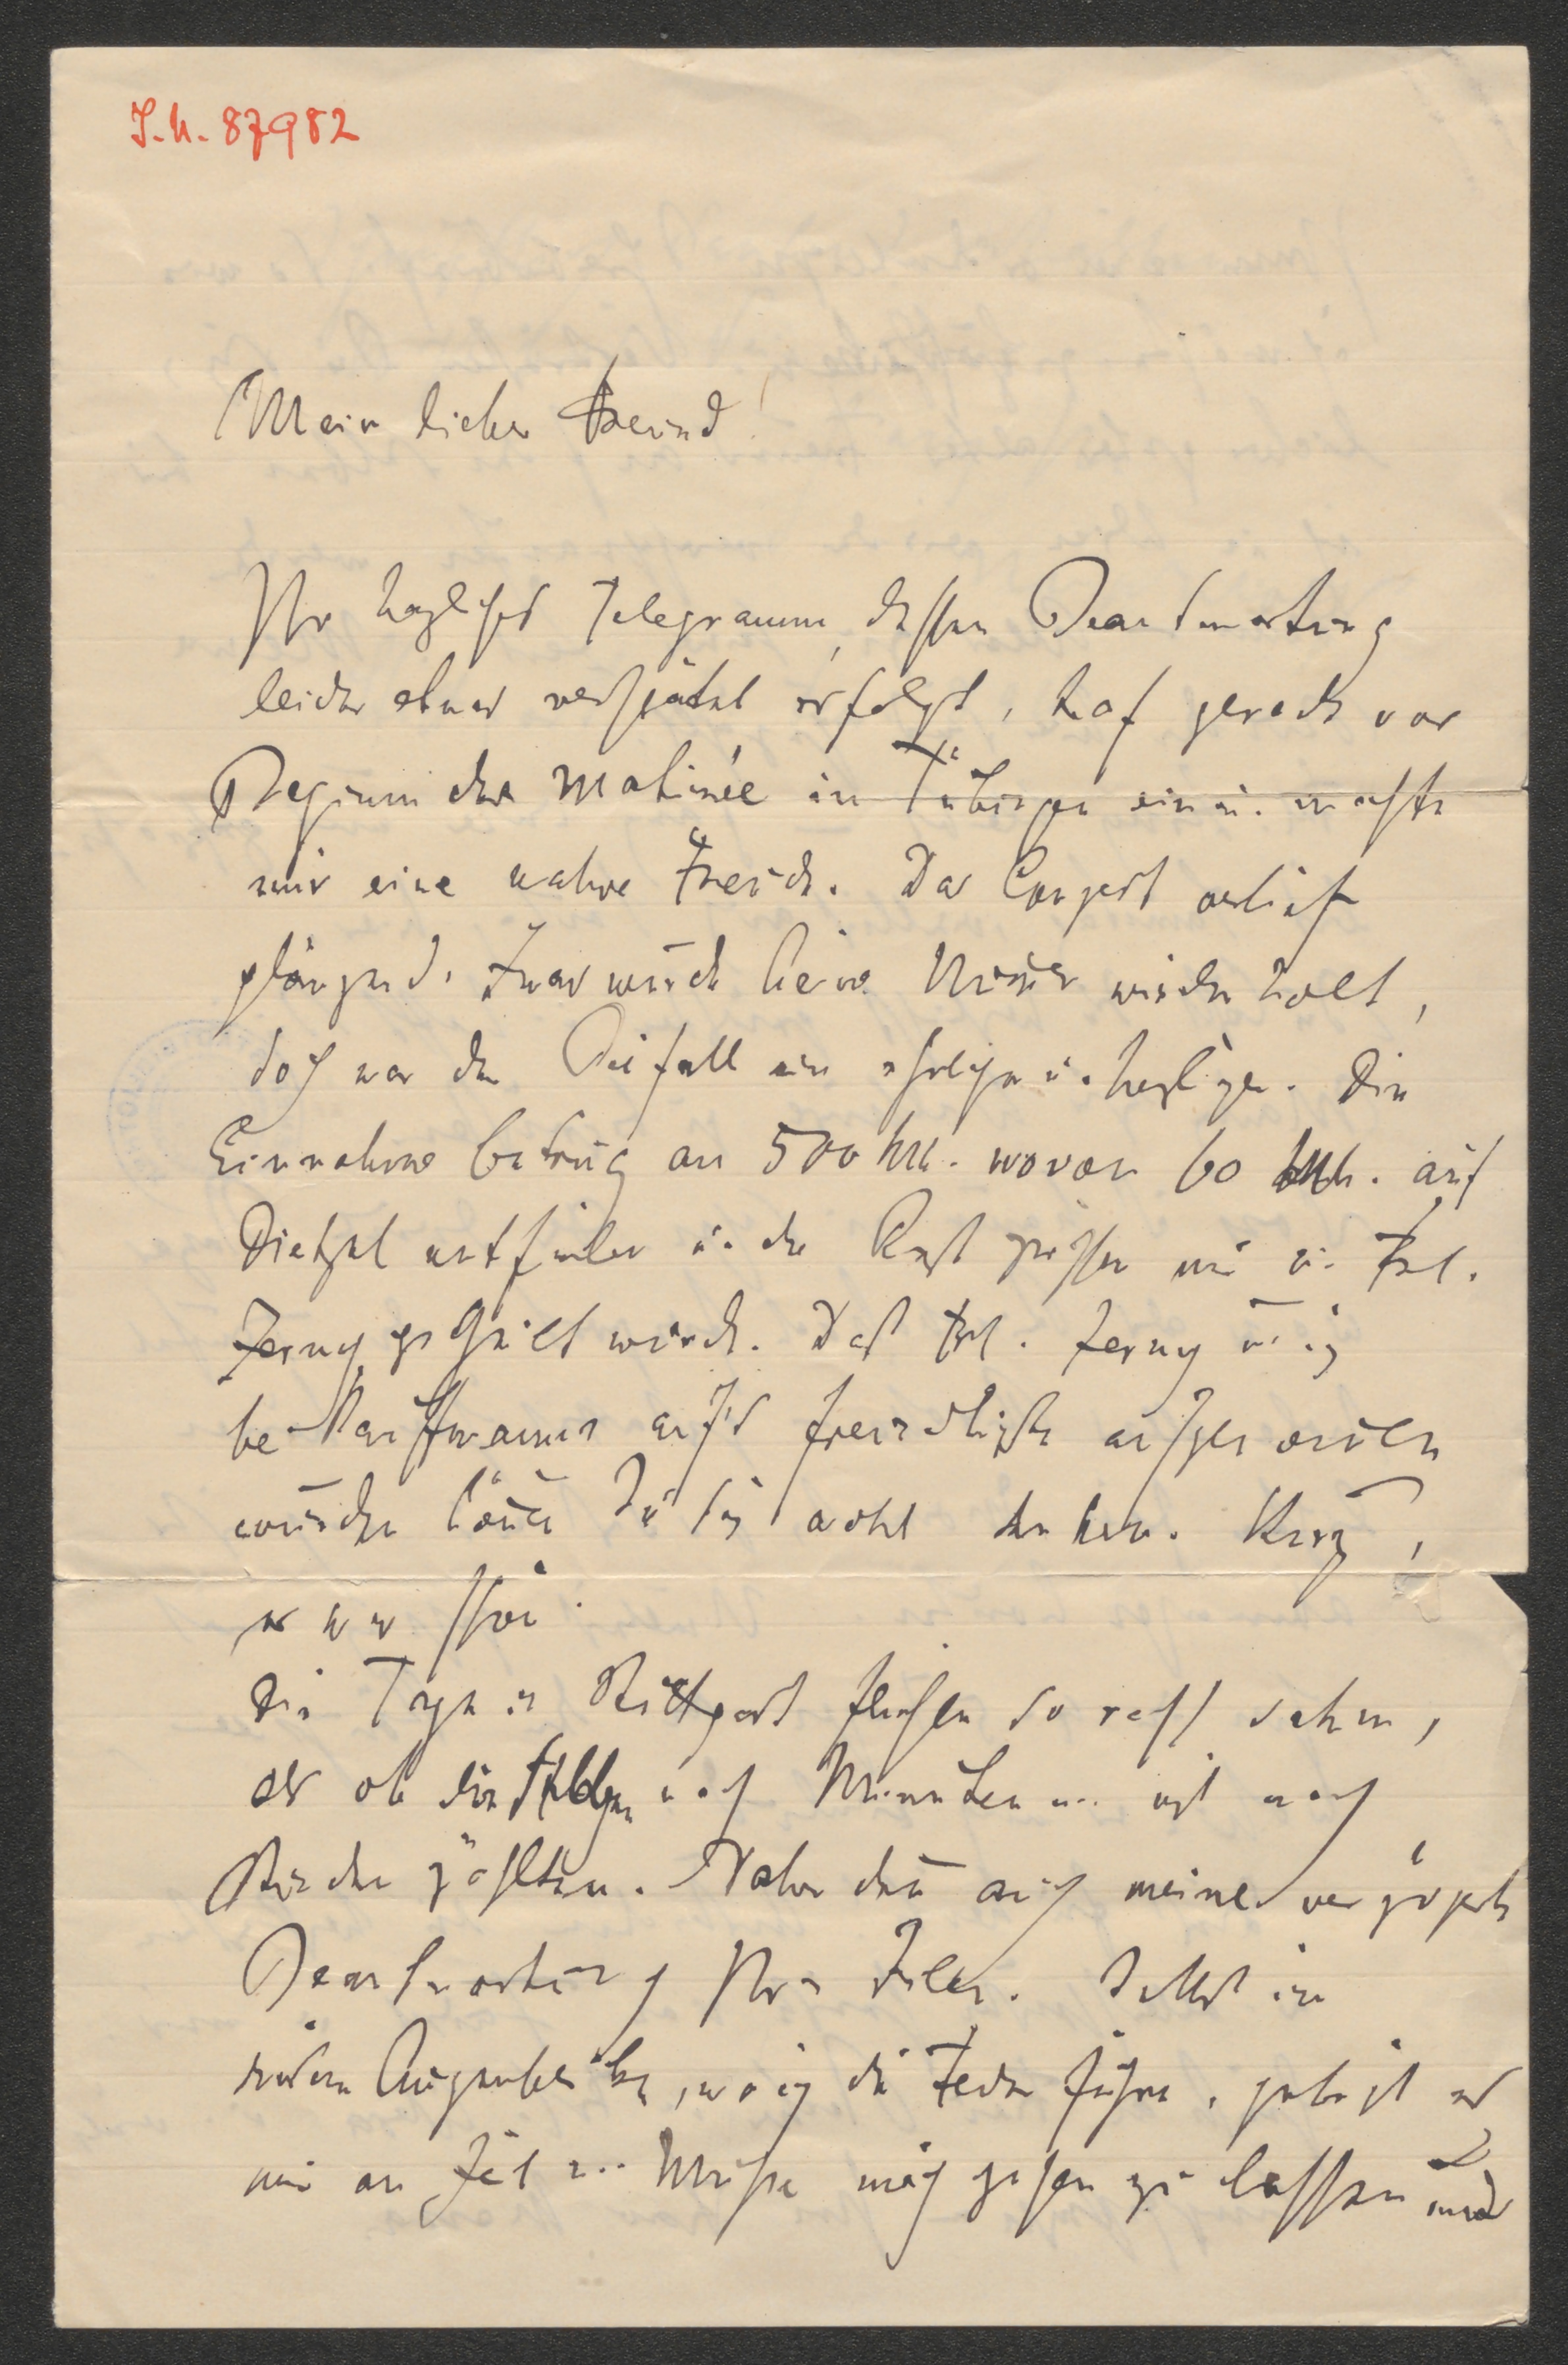 I.N. 87982
Mein lieber Freund!
Ihr herzliches Telegramm, dessen Beantwortung
leider etwas verspätet erfolgt, traf gerade vor
Beginn der Matinée in Tübingen ein u. machte
mir eine wahre Freude. Das Conzert verlief
glänzend. Zwar wurde keine Nummer wiederholt,
doch war der Beifall ein ehrlicher u. herzlicher. Die
Einnahme betrug an 500 Mk. wovon 60 Mk. auf
Diezel entfielen u. der Rest zwischen mir u. Frl.
Zerny getheilt wurde. Daß Frl. Zerny u. ich
bei Kauffmanns auf's freundlichste aufgenommen
wurden können Sie sich wohl denken. Kurz,
es war schön.
Die Tage in Stuttgart flossen so rasch dahin,
als ob dieselben nach Minuten u. nicht nach
Stunden zählten. Daher denn auch meine verzögerte
Beantwortung Ihrer Zeilen. Selbst in
diesem Augenblicke, wo ich die Feder führe, gebricht es
mir an Zeit u. Muße mich gehen zu lassen und